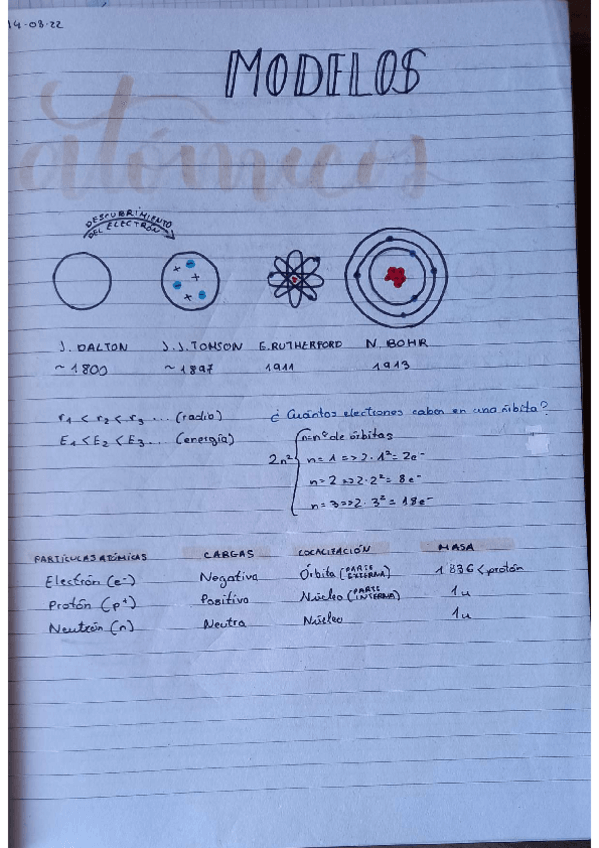 14-08-22
MODELOS
atómicos
DESCUBRIMIENTO
DEL ELECTRÓN
+ - + - + -
J. DALTON J. J. TOMSON E. RUTHERFORD N. BOHR
~ 1800 ~ 1897 1911 1913
r₁ < r₂ < r₃ ... (radio) ¿Cuántos electrones caben en una órbita?
E₁ < E₂ < E₃ ... (energía) n=nº de órbitas
2n² { n = 1 => 2 · 1² = 2e⁻
n = 2 => 2 · 2² = 8e⁻
n = 3 => 2 · 3² = 18e⁻
PARTÍCULAS ATÓMICAS CARGAS LOCALIZACIÓN MASA
Electrón (e⁻) Negativa Órbita (PARTE EXTERNA) 1 836 < protón
Protón (p⁺) Positiva Núcleo (PARTE INTERNA) 1u
Neutrón (n) Neutra Núcleo 1u